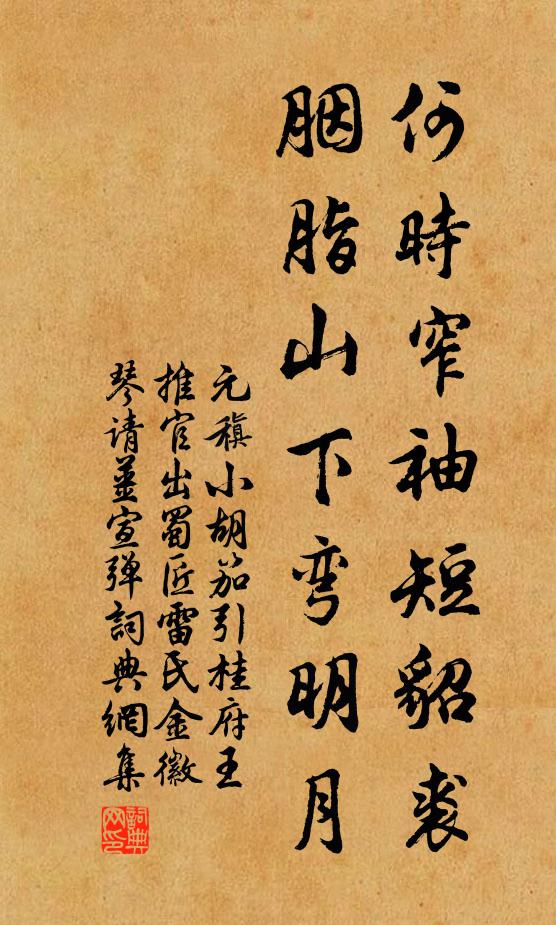 何時窄袖短貂裘
胭脂山下弯明月
元稹小胡笳引桂府王
推官出蜀匠雷氏金徽
琴请姜宣弹詞典網集
詞典网印